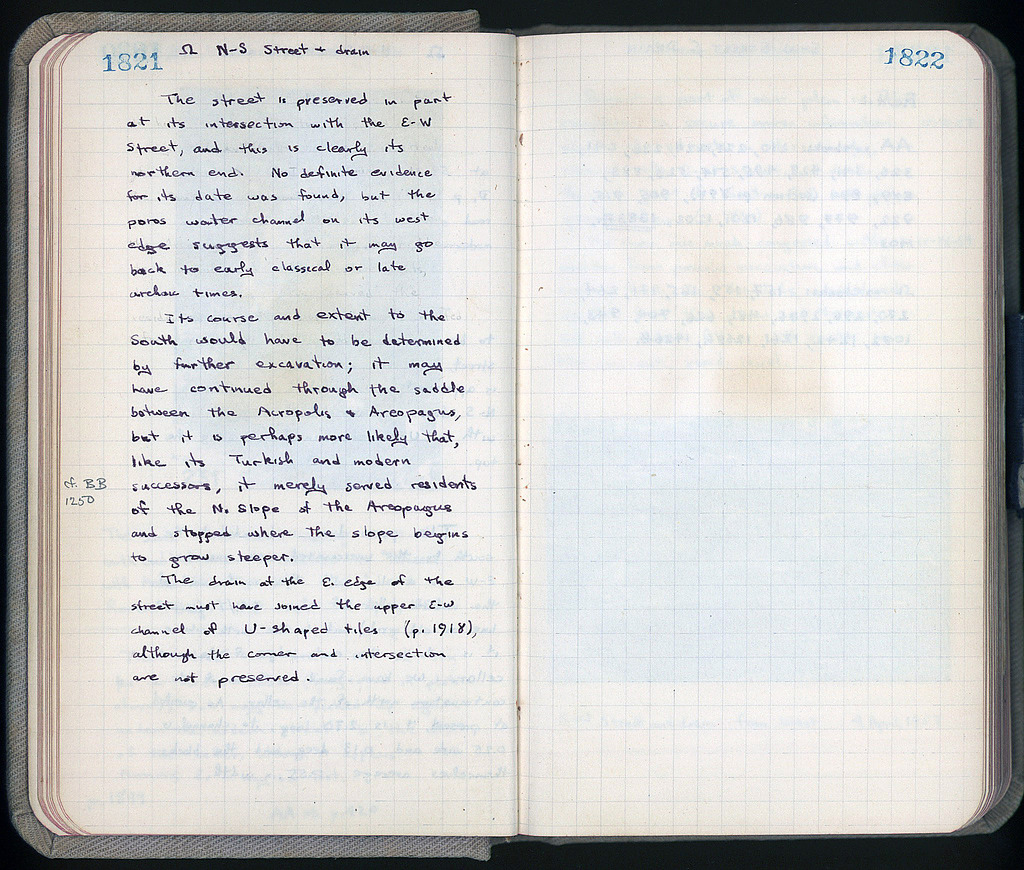 1821
Ω N-S Street + drain
The street is preserved in part
at its intersection with the E-W
Street, and this is clearly its
northern end. No definite evidence
for its date was found, but the
poros water channel on its west
edge suggests that it may go
back to early classical or late
archaic times.
Its course and extent to the
South would have to be determined
by further excavation; it may
have continued through the saddle
between the Acropolis & Areopagus,
but it is perhaps more likely that,
like its Turkish and modern
cf. BB
1250
successors, it merely served residents
of the N. Slope of the Areopagus
and stopped where the slope begins
to grow steeper.
The drain at the E. edge of the
street must have joined the upper E-W
channel of U-shaped tiles (p. 1918),
although the corner and intersection
are not preserved.
1822